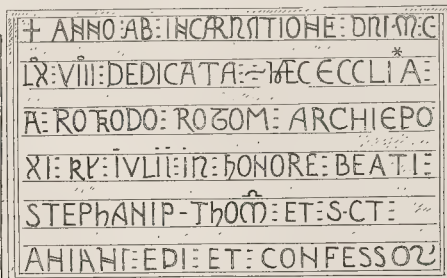 + ANNO : AB : INCARNATIONE : DNI : M : C
LX : VIII : DEDICATA : ~ HEC ECCLIA :
A : ROTRODO : ROTOM : ARCHIEPO
XI : KL : IVLII : IN : hONORE : BEATI :
STEPhANI P - ThOM : ET : S - CT :
ANIANI : EDI : ET : CONFESSOR